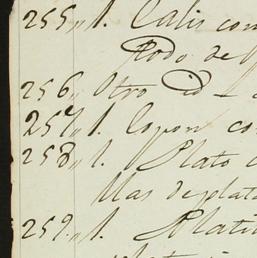 255,, 1. Calis con
Todo de
256,, Otro id
257,, 1. Copon co
258,, 1. Plato
Mas de plata
259,, 1. Plati